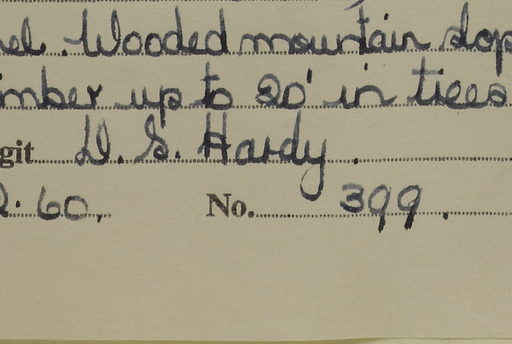 el. Wooded mountain slop
mber up to 20' in trees
git D. S. Hardy.
2.60. No. 399.